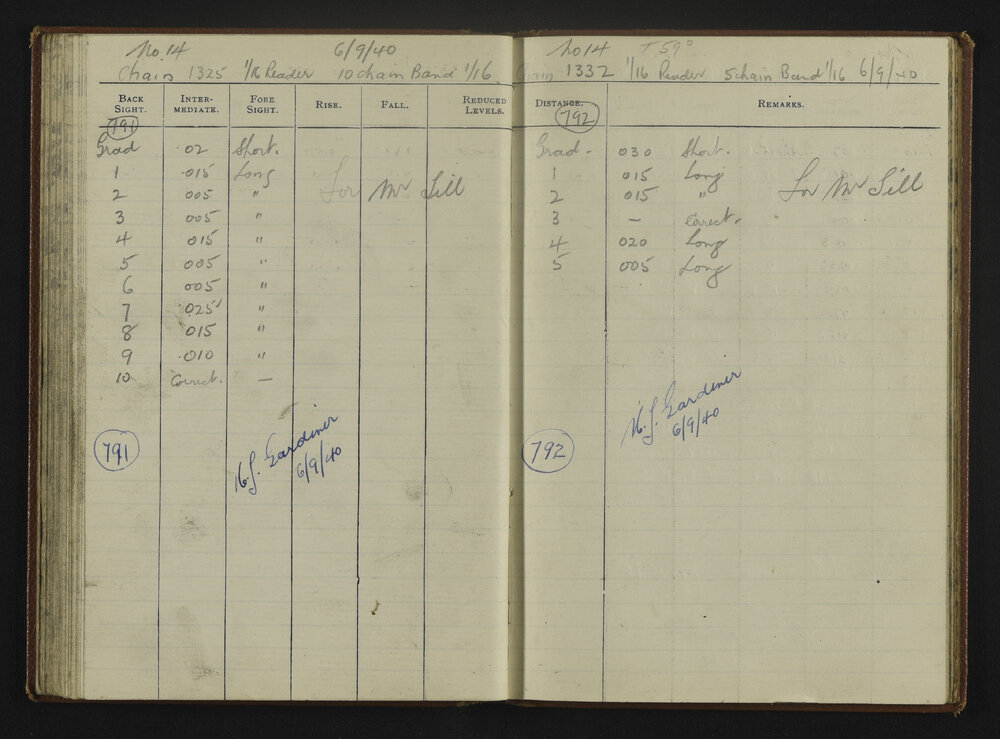 No. 14 6/9/40
Chain 1325 1/16 Reader 10 chain Band 1/16
BACK SIGHT. INTER-MEDIATE. FORE SIGHT. RISE. FALL. REDUCED LEVELS.
791
Grad .02 Short.
1 .015 Long
2 005 " For Mr Sill
3 .005 "
4 .015 "
5 .005 "
6 .005 "
7 .025 "
8 .015 "
9 .010 "
10 Correct. —
791
Gardiner
6/9/40
No 14 T 59°
Chain 1332 1/16 Reader 5 chain Band 1/16 6/9/40
DISTANCE. REMARKS.
792
Grad - 030 Short.
1 015 Long
2 015 " For Mr Sill
3 — Correct.
4 020 Long
5 005 Long
792
Gardiner
6/9/40